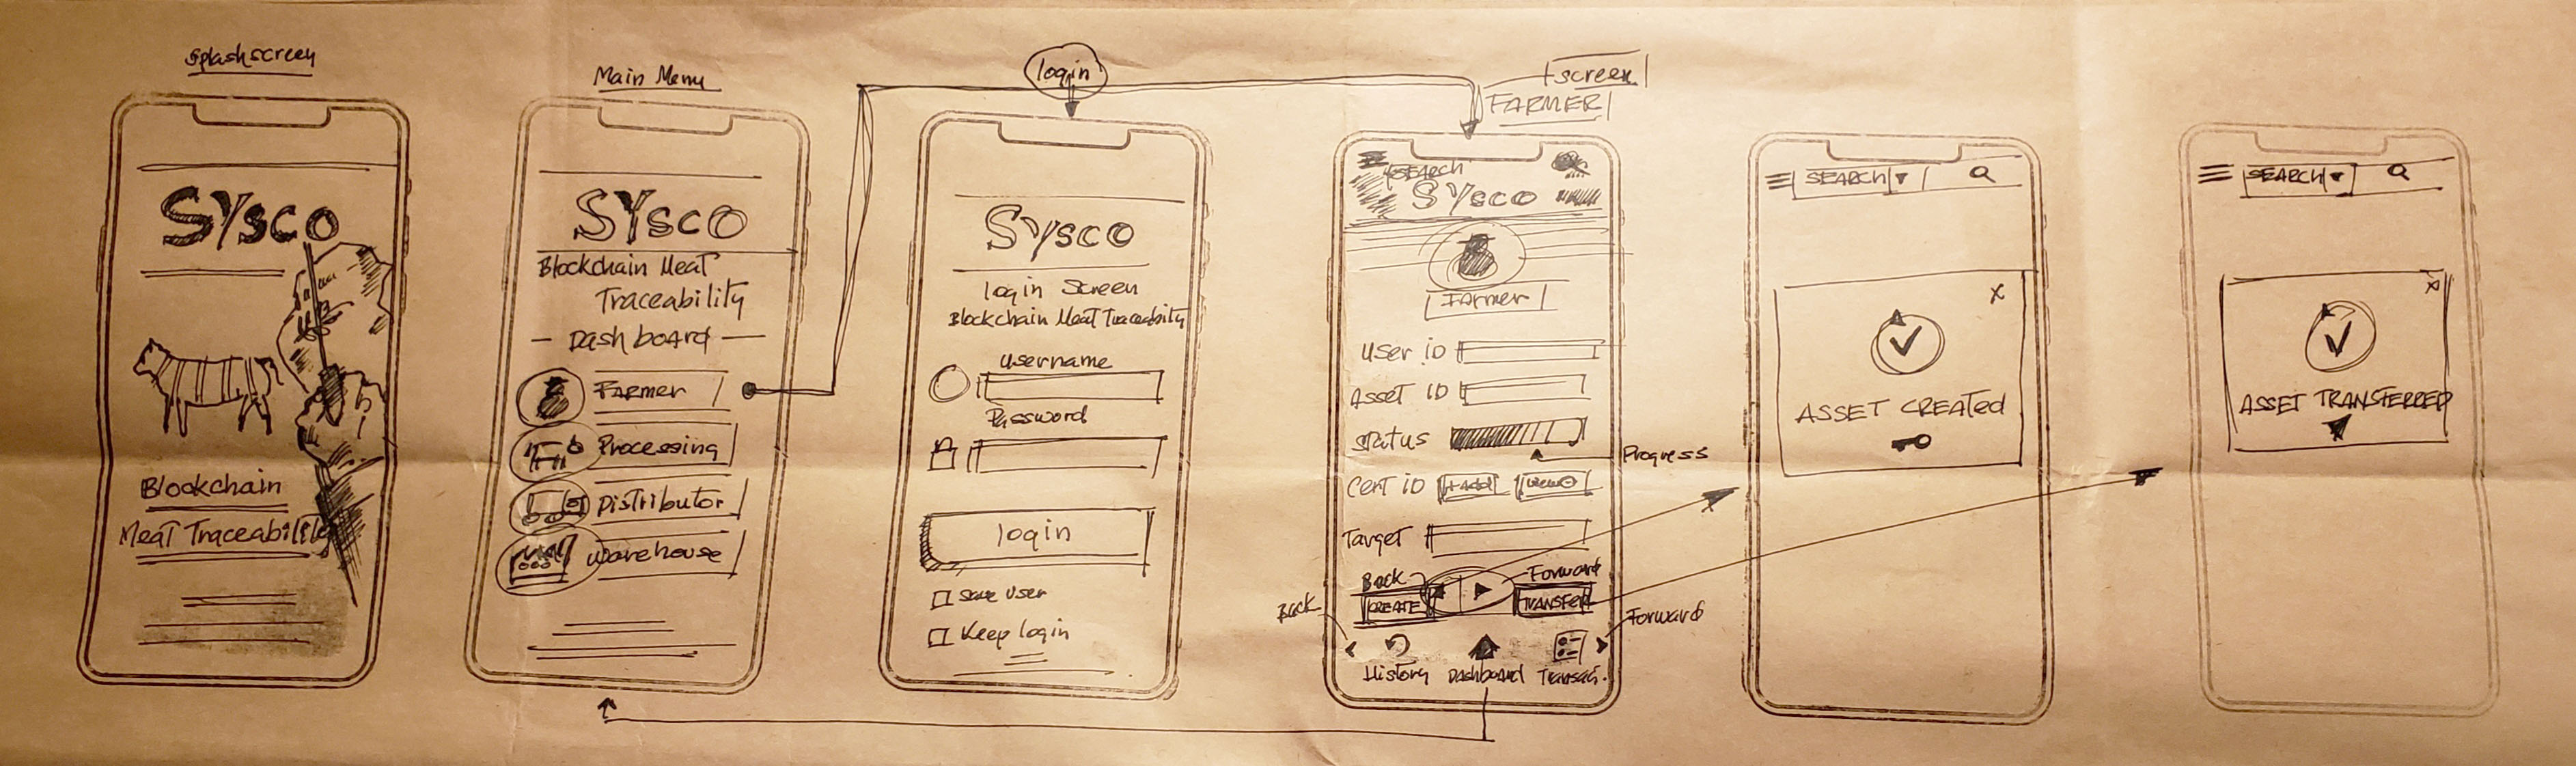 Splashscreen
SYsco
Blockchain
Meat Traceability
Main Menu
SYsco
Blockchain Meat
Traceability
- Dashboard -
FARMER
Processing
Distributor
warehouse
login
SYsco
login Screen
Blockchain Meat Traceability
username
Password
login
Save User
Keep login
screen
FARMER
SEARCH
SYsco
FArmer
User iD
Asset ID
Status
Progress
Cert iD
+Add
View
Target
Back
Forward
CREATE
TRANSFER
Back
Forward
History
Dashboard
Transac.
SEARCH
X
ASSET CREATED
SEARCH
X
ASSET TRANSFERRED